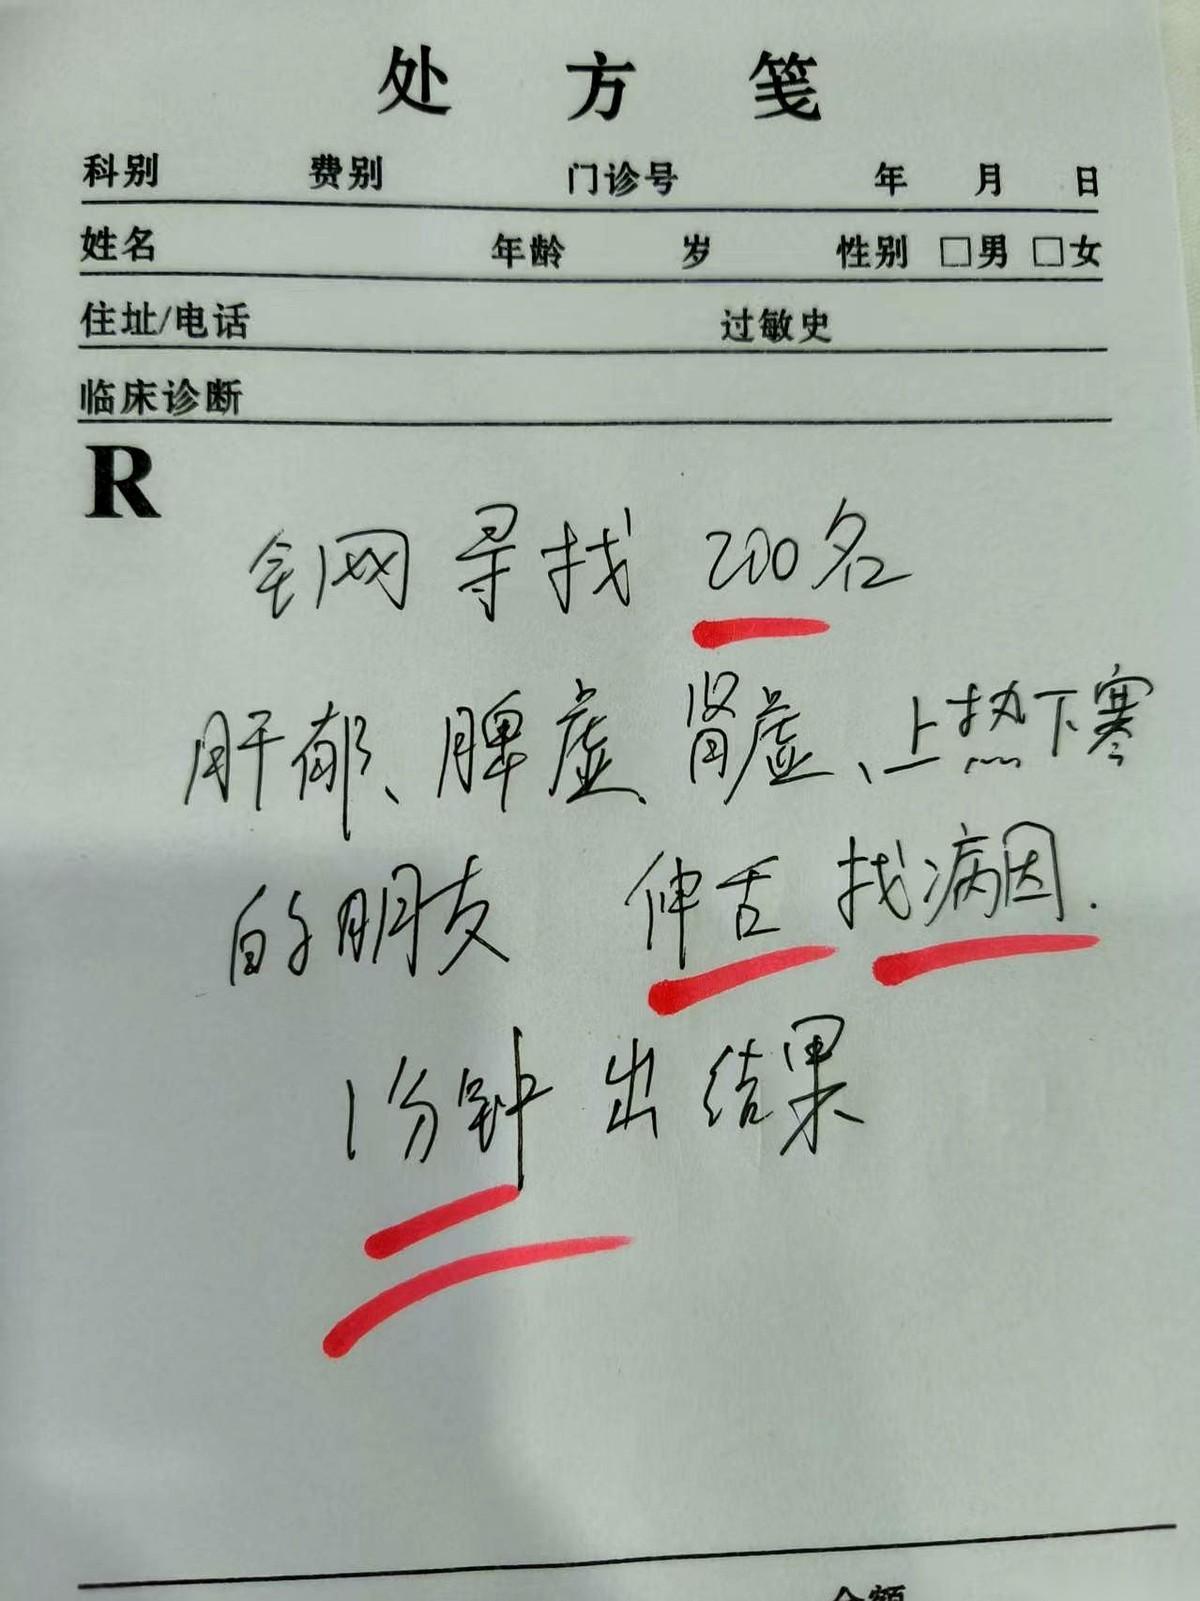 处 方 笺
科别 费别 门诊号 年 月 日
姓名 年龄 岁 性别 □男 □女
住址/电话 过敏史
临床诊断
R
全网寻找 200名
肝郁、脾虚、肾虚、上热下寒
的朋友 伸舌 找病因.
1分钟 出结果
金额